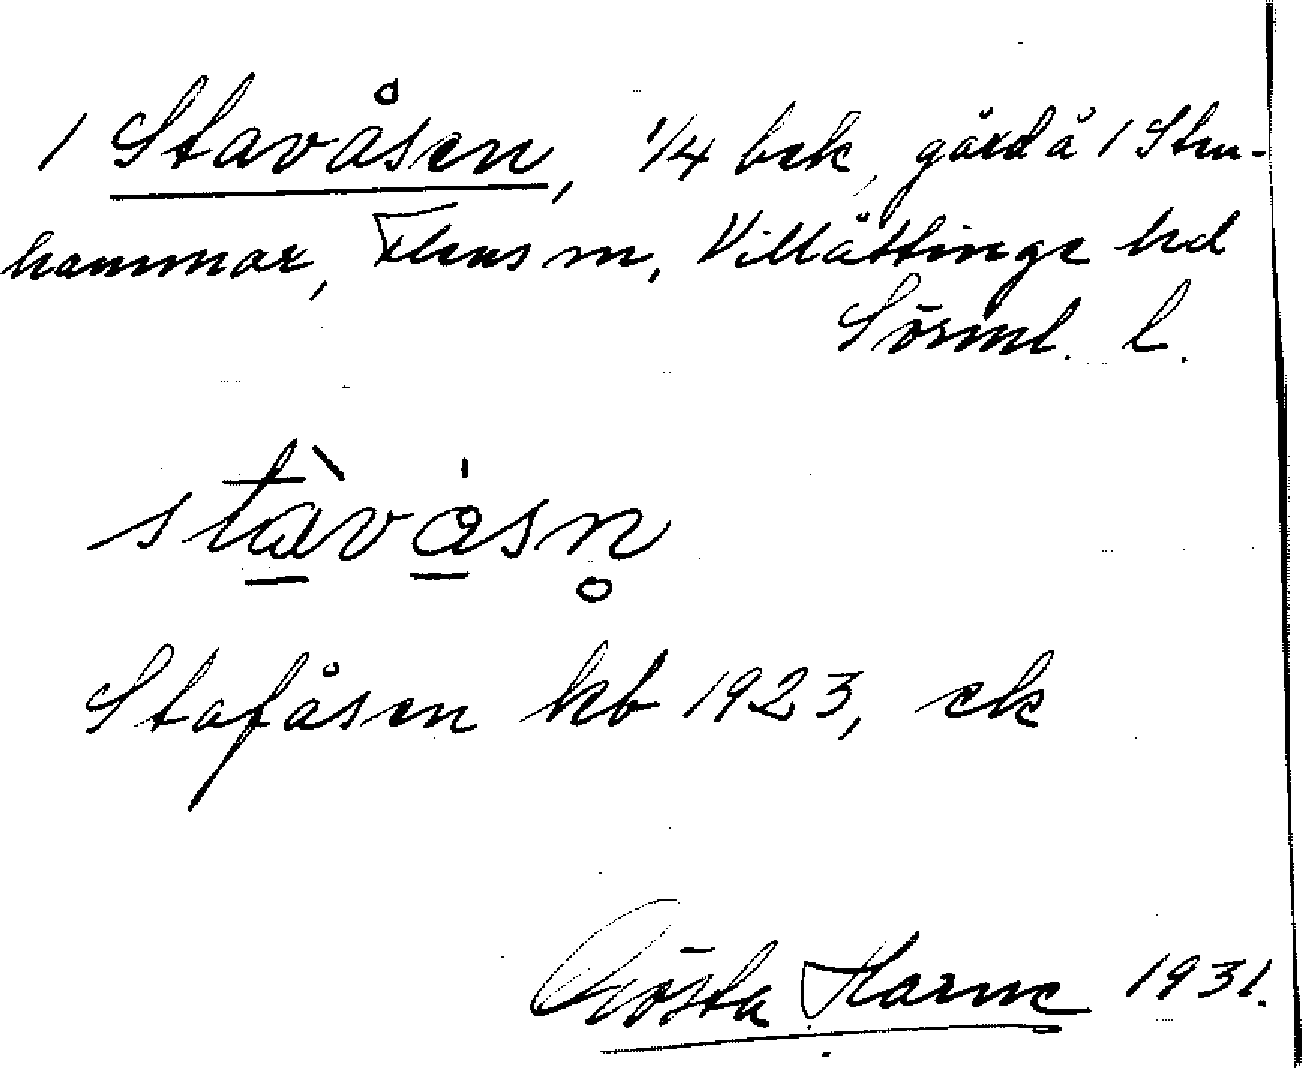 1 Stavåsen, 1/4 bek, gård å 1 Sten-
hammar, Flens sn, Villåttinge hd
Sörml. l.
stàvåsn̥
Stafåsen kb 1923, ek
Gösta Harne 1931.